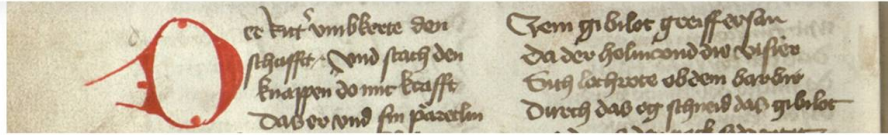 Der Ritter vmbkerte den
schafft · Vnd stach den
knappen do mit krafft
Das er vnd sin pfaretlin
Zem gibilot greiff er san
Da der helm vnd diu visier
Sich lochrote ob dem barbir
Durch das og schneid das gibilot